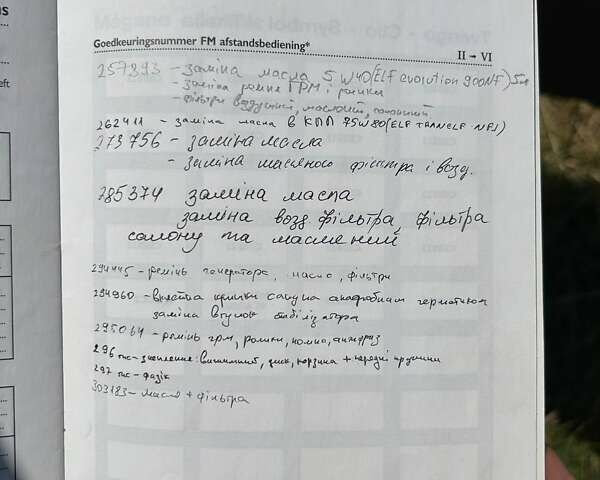 Goedkeuringsnummer FM afstandsbediening*
II → VI
257893 - заміна масла 5W40 (ELF evolution 900NF) 5л
- заміна ременя ГРМ і ролики
- фільтри воздушний, масляний, паливний
262411 - заміна масла в КПП 75W80 (ELF TRANELF NFJ)
273756 - заміна масла
- заміна масляного фільтра і возд.
285374 заміна масла
заміна возд фільтра, фільтра
салону та масляний
294445 - ремінь генератора, масло, фільтри
294960 - герметиком
заміна втулок стабілізатора
295064 - ремінь грм, ролики, помпа, антифриз
296 тис - зчеплення: вижимний, диск, корзина + передні пружини
297 тис - фазік
303183 - масло + фільтра